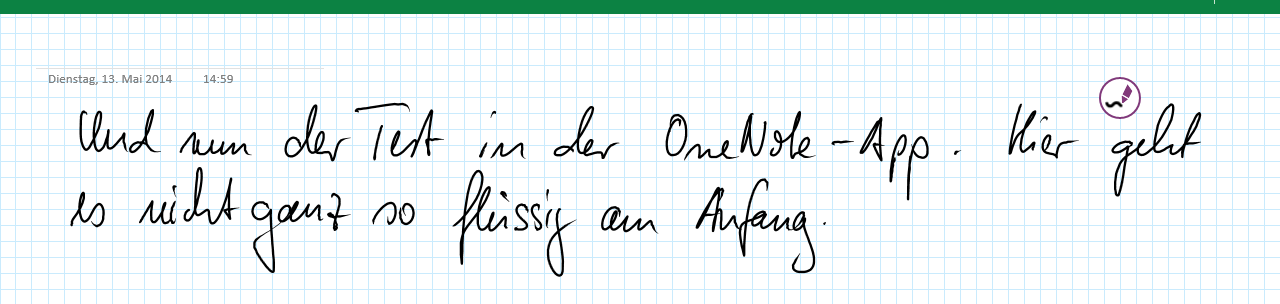 Dienstag, 13. Mai 2014 14:59
Und nun der Test in der OneNote-App. Hier geht
es nicht ganz so flüssig am Anfang.